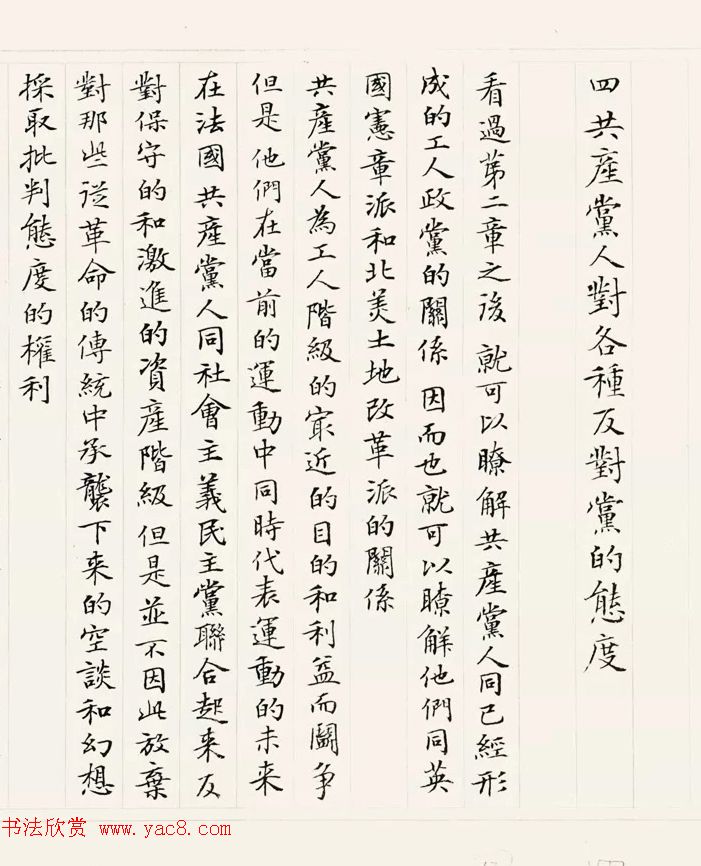 四共產黨人對各種反對黨的態度
看過第二章之後 就可以瞭解共產黨人同已經形
成的工人政黨的關係 因而也就可以瞭解他們同英
國憲章派和北美土地改革派的關係
共產黨人為工人階級的最近的目的和利益而鬭争
但是他們在當前的運動中同時代表運動的未來
在法國共產黨人同社會主義民主黨聯合起来反
對保守的和激進的資產階級 但是並不因此放棄
對那些從革命的傳統中承襲下来的空談和幻想
採取批判態度的權利
书法欣赏 www.yac8.com